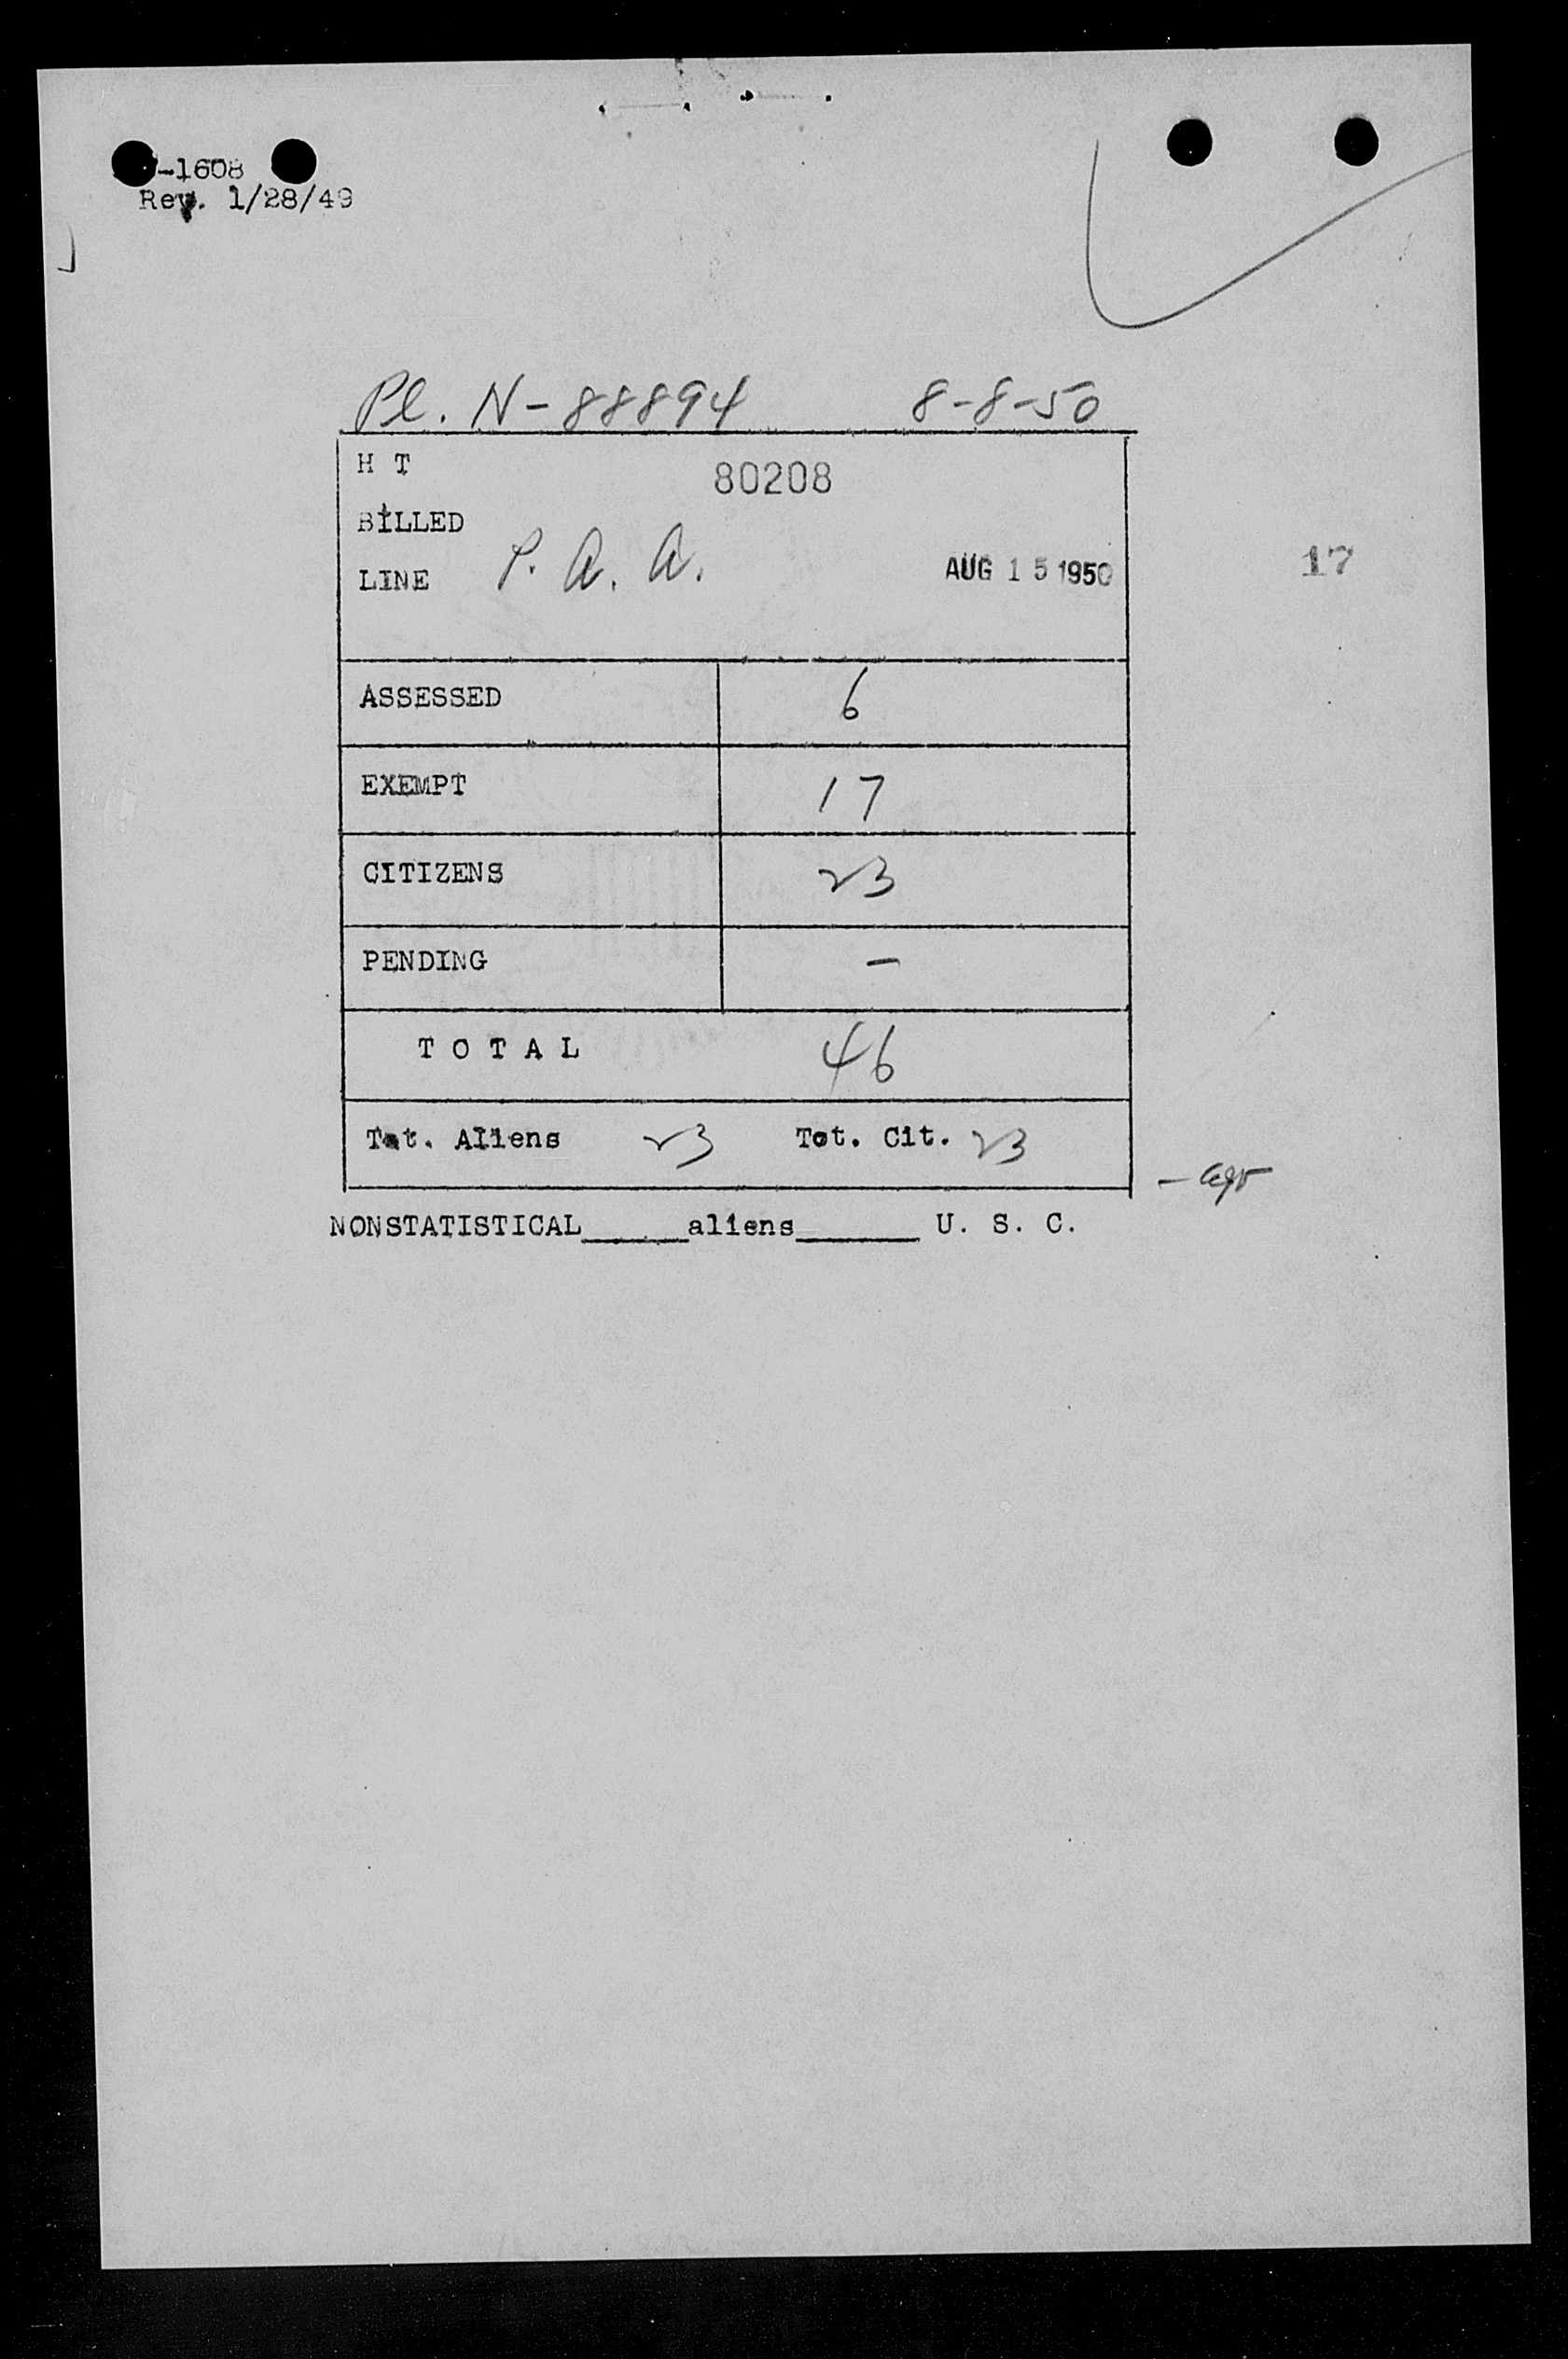 -1608
Rev. 1/28/49
Pl. N-88894 8-8-50
H T 80208
BILLED
LINE P. A. A. AUG 15 1950 17
ASSESSED 6
EXEMPT 17
CITIZENS 23
PENDING -
T O T A L 46
Tot. Aliens 23 Tot. Cit. 23
NONSTATISTICAL_____aliens______ U. S. C.